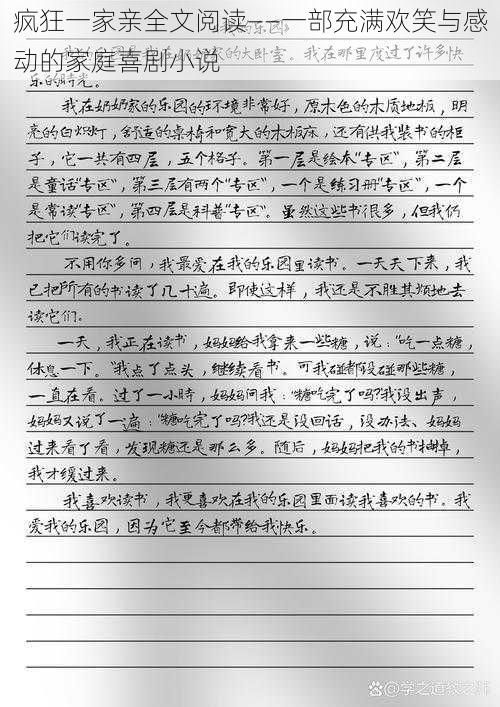 疯狂一家亲全文阅读——一部充满欢笑与感
动的家庭喜剧小说
的乐园》
的大卧室。我在那里度过了许多快
乐的时光。
我在奶奶家的乐园的环境非常好，原木色的木质地板，明
亮的白炽灯，舒适的桌椅和宽大的木板床，还有供我装书的柜
子，它一共有四层，五个格子。第一层是绘本“专区”，第二层
是童话“专区”，第三层有两个“专区”，一个是练习册“专区”，一个
是常读“专区”，第四层是科普“专区”。虽然这些书很多，但我仍
把它们读完了。
不用你多问，我最爱在我的乐园里读书。一天天下来，我
已把所有的书读了几十遍。即使这样，我还是不胜其烦地去
读它们。
一天，我正在读书，妈妈给我拿来一些糖，说：“吃一点糖，
休息一下。”我点了点头，继续看书。可我碰都没碰那些糖，
一直在看。过了一小时，妈妈问我：“糖吃完了吗？”我没出声，
妈妈又说了一遍：“糖吃完了吗？”我还是没回话，没办法、妈妈
过来看了看，发现糖还是那么多。随后，妈妈把我的书抽掉，
我才缓过来。
我喜欢读书，我更喜欢在我的乐园里面读我喜欢的书。我
爱我的乐园，因为它至今都带给我快乐。
@学之道教之师